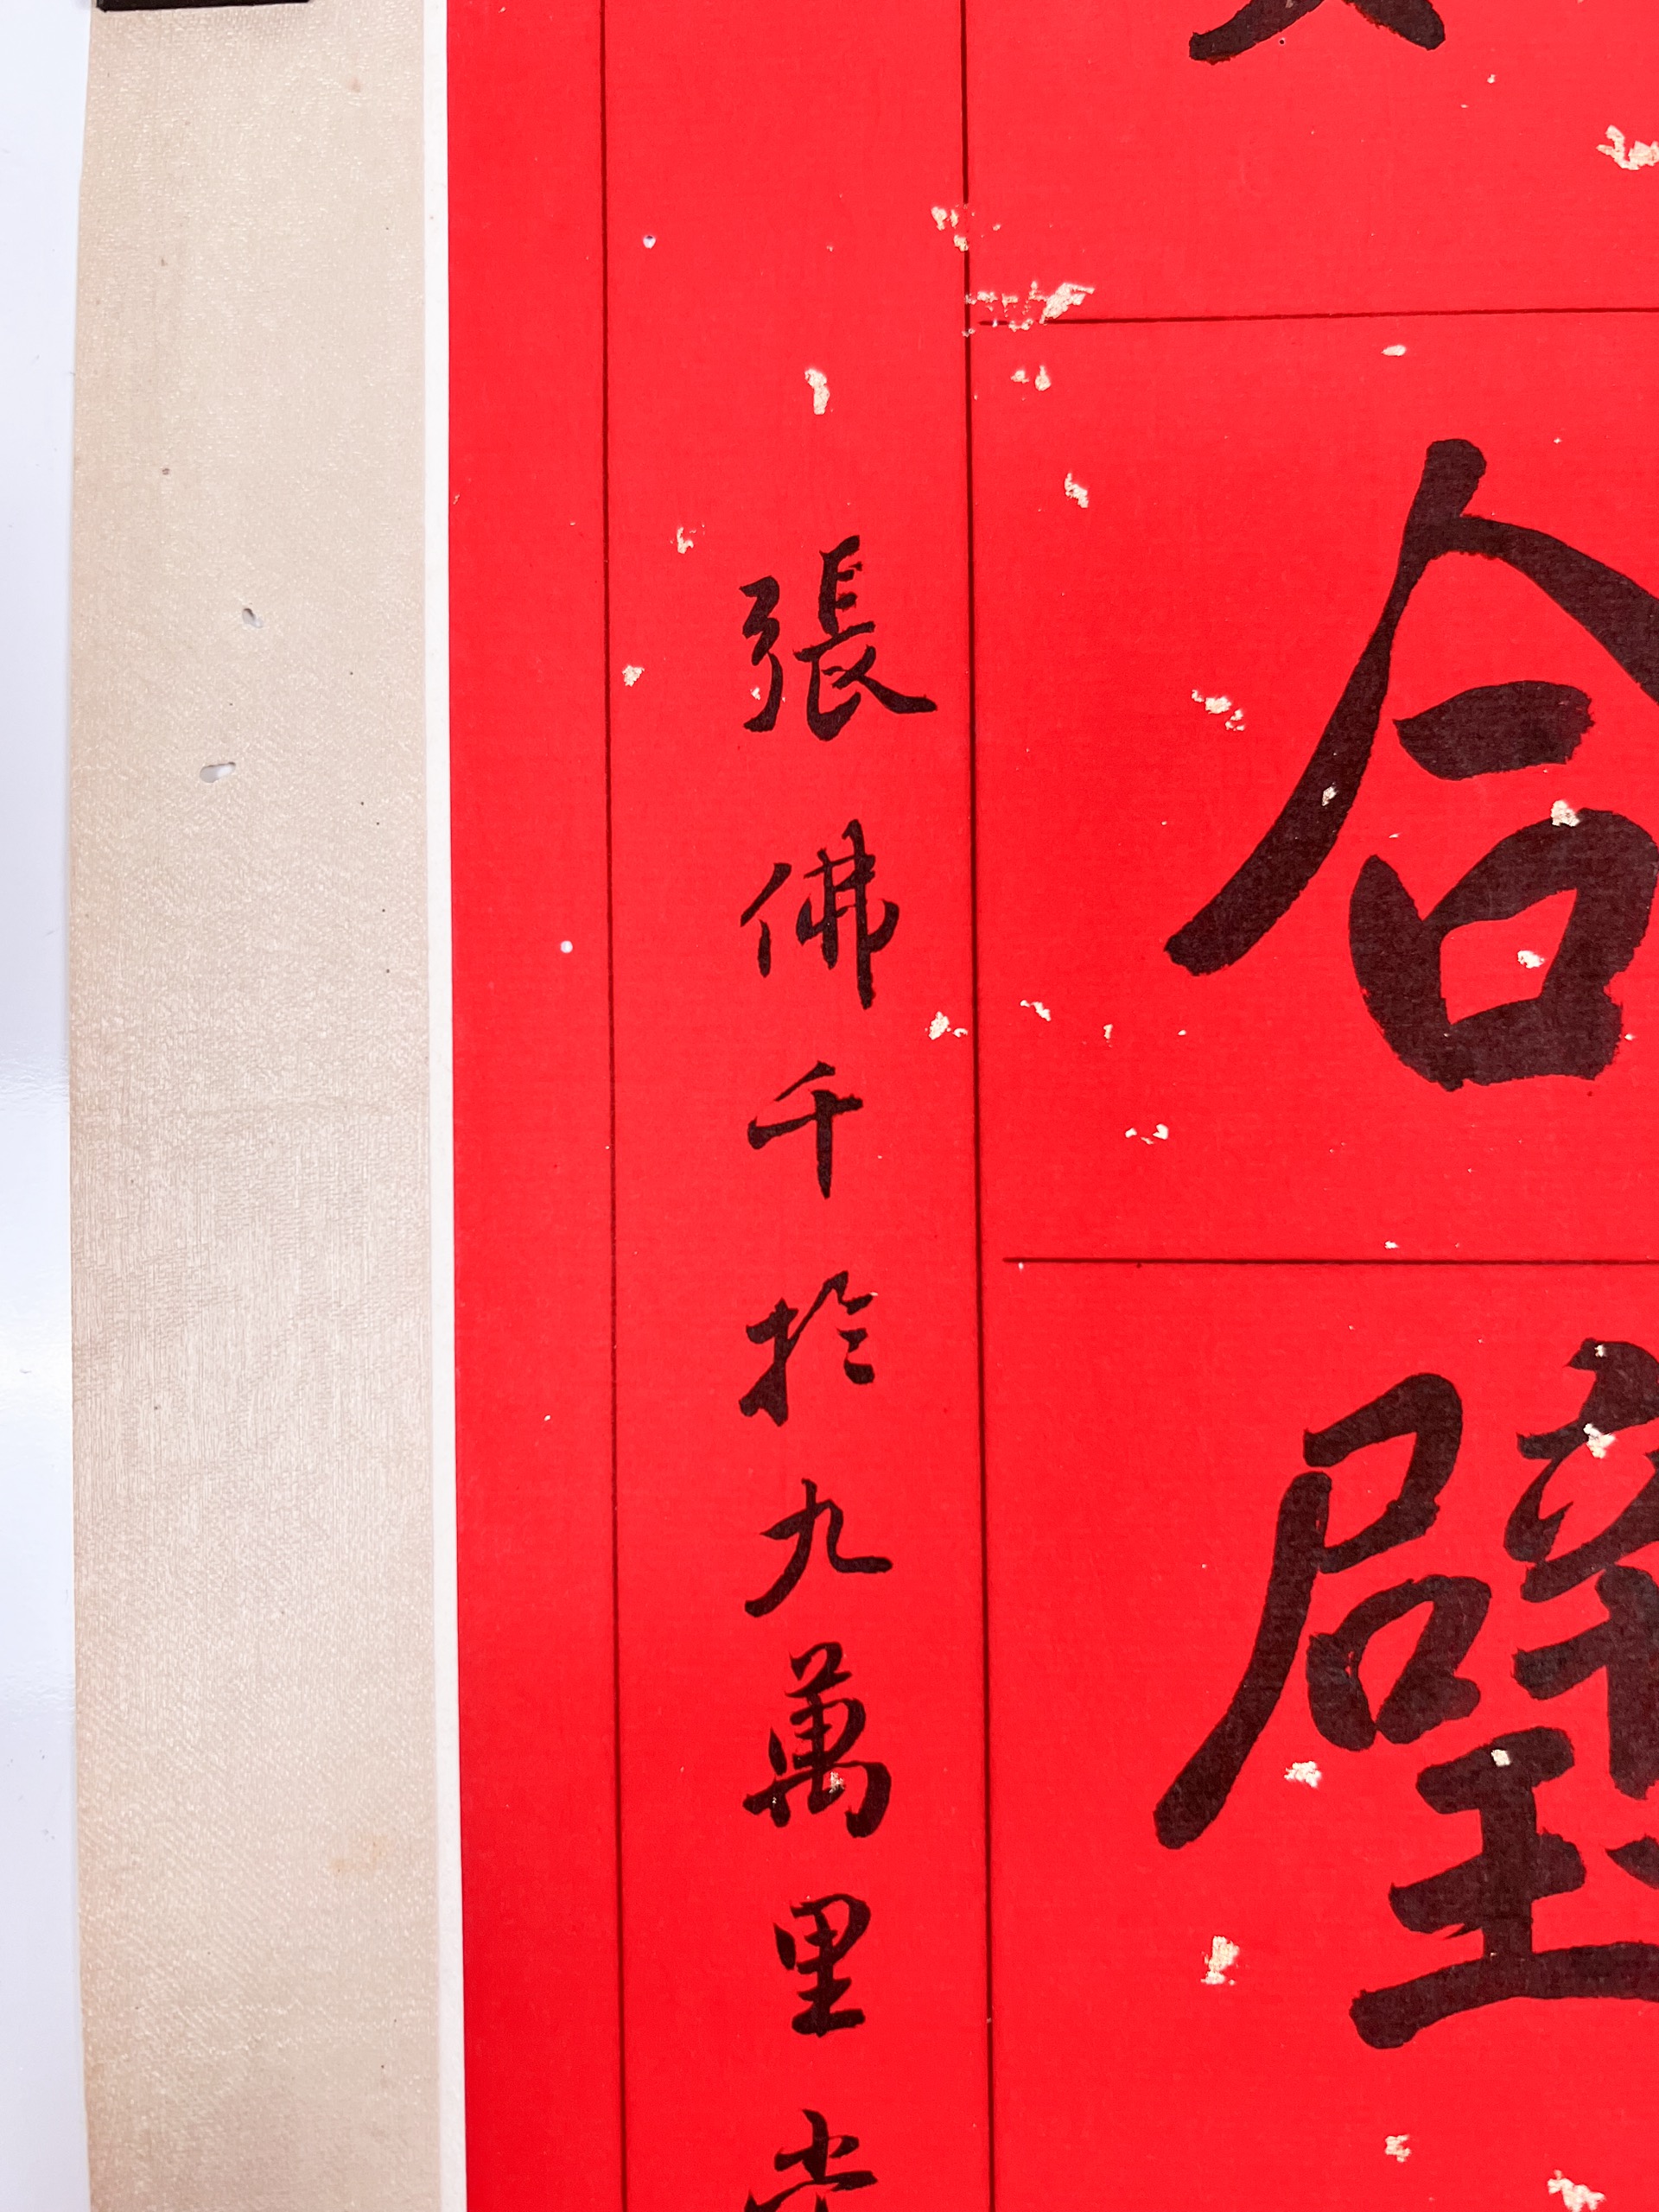 合璧
張佛千於九萬里堂